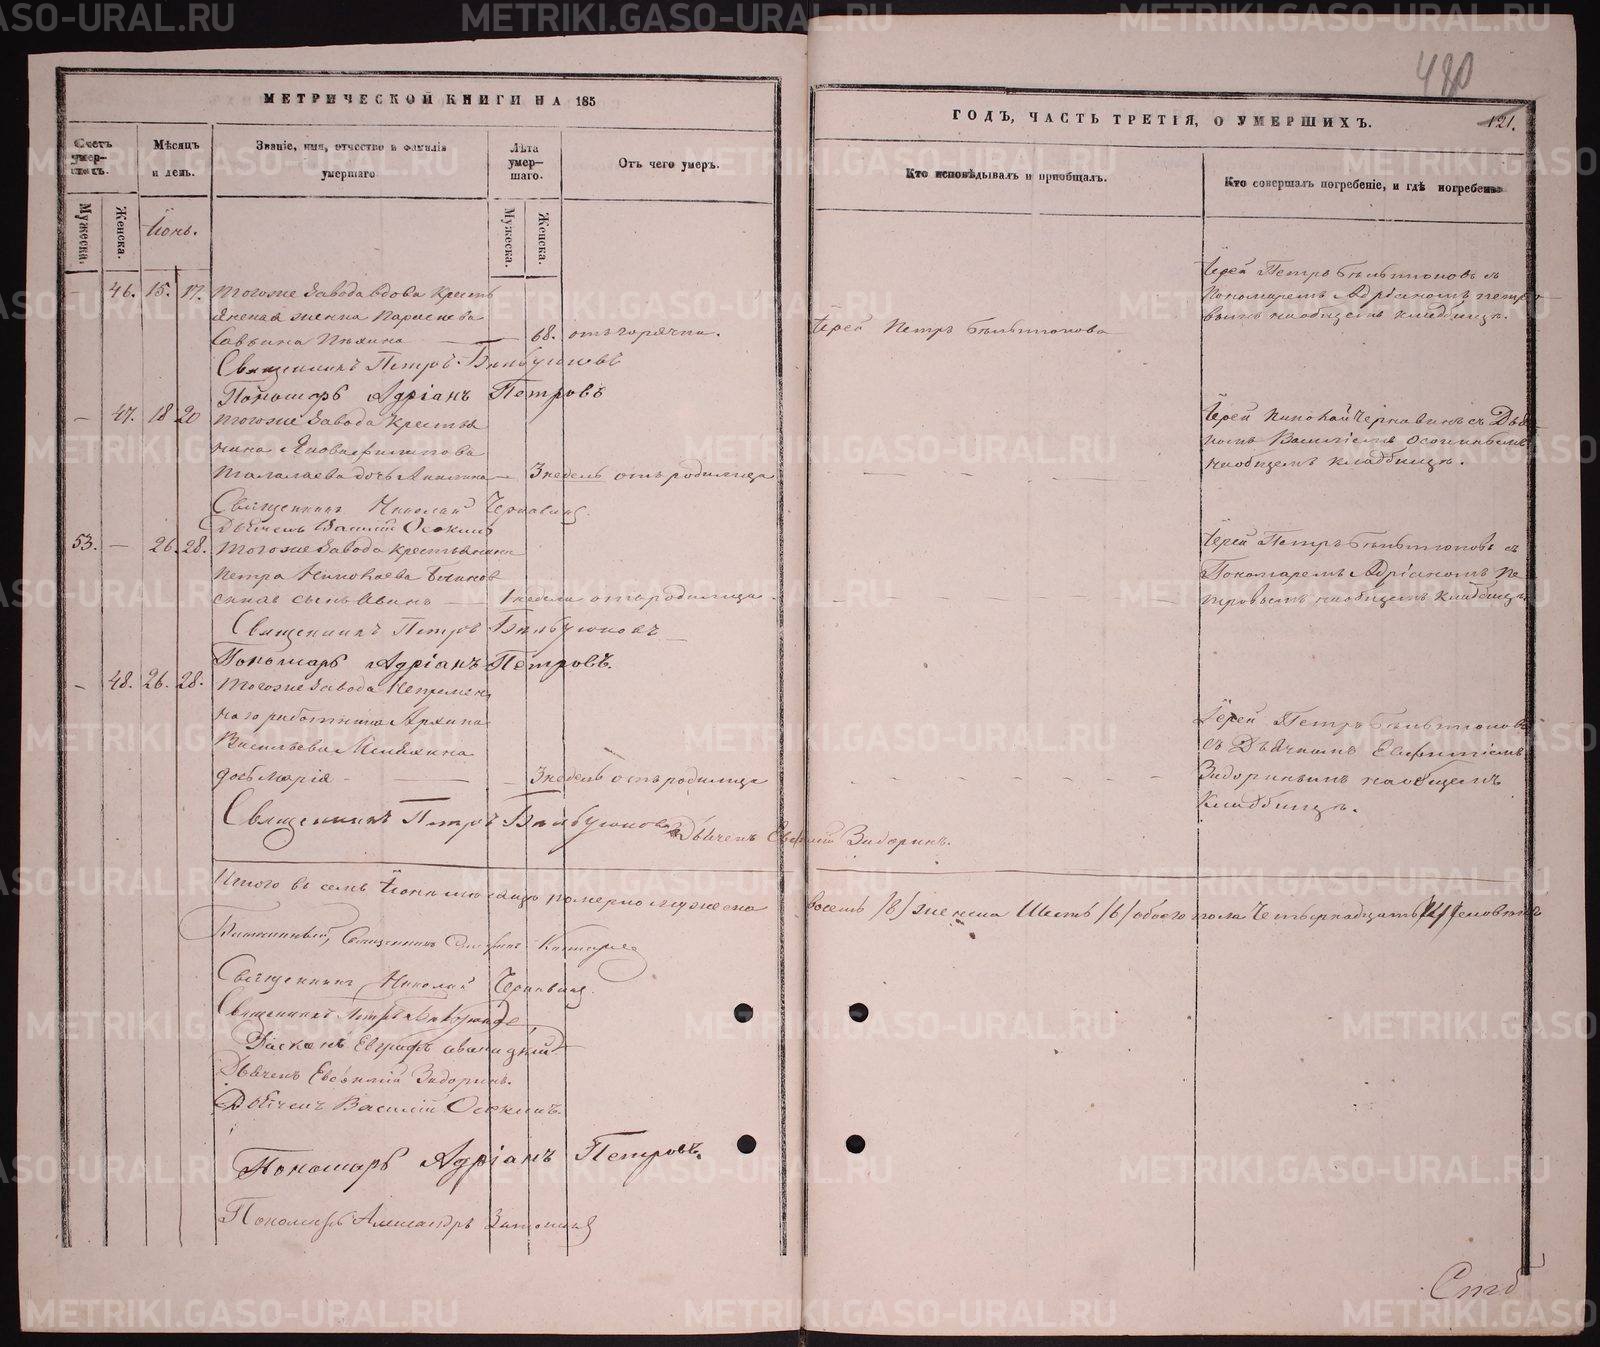 480
МЕТРИЧЕСКОЙ КНИГИ НА 185
ГОДЪ, ЧАСТЬ ТРЕТІЯ, О УМЕРШИХЪ.
121.
Счетъ умер-шихъ.
Мѣсяцъ и день.
Званіе, имя, отчество и фамилія умершаго
Лѣта умер-шаго.
Отъ чего умеръ.
Кто исповѣдывалъ и пріобщалъ.
Кто совершалъ погребеніе, и гдѣ погребены
Мужеска.
Женска.
Іюнь.
Мужеска.
Женска.
— 46. 15. 17. Тогоже завода вдова крестъ
янская женка Параскева
Савина — 68. отъ горячки.
Іерей Петръ
Іерей Петръ съ
Пономаремъ Адріаномъ Петро
вымъ на общемъ кладбищѣ.
Священникъ Петръ
Пономарь Адріанъ Петровъ
— 47. 18 20 Тогоже завода крестья
нина Якова Филипова
Талалаева дочь Акилина — 3 недель отъ родимца
Іерей Николай Чернавинъ съ Дья
комъ Василіемъ Осокинымъ
на общемъ кладбищѣ.
Священникъ Николай Чернавинъ.
Дьячекъ Василій Осокинъ
53. — 26. 28. Тогоже завода крестьянина
Петра Николаева
сынъ — 1 недели отъ родимца.
Іерей Петръ съ
Пономаремъ Адріаномъ Пе
тровымъ на общемъ кладбищѣ.
Священникъ Петръ
Пономарь Адріанъ Петровъ.
— 48. 26. 28. Тогоже завода Непремен
наго работника Архипа
Васильева
дочь Марія — 3 недель отъ родимца
Іерей Петръ
съ Дьячкомъ Евфиміемъ
Задоринымъ на общемъ
Кладбищѣ.
Священникъ Петръ
Дьячекъ Евфимій Задоринъ.
Итого въ семъ Іюнѣ мѣсяцѣ померло мужеска восемь /8/ женска Шесть /6/ обоего пола Четырнадцать /14/ человѣкъ
Священникъ
Священникъ Николай Чернавинъ.
Священникъ Петръ
Діаконъ Евграфъ
Дьячекъ Евфимій Задоринъ.
Дьячекъ Василій Осокинъ.
Пономарь Адріанъ Петровъ.
Пономарь Александръ
METRIKI.GASO-URAL.RU